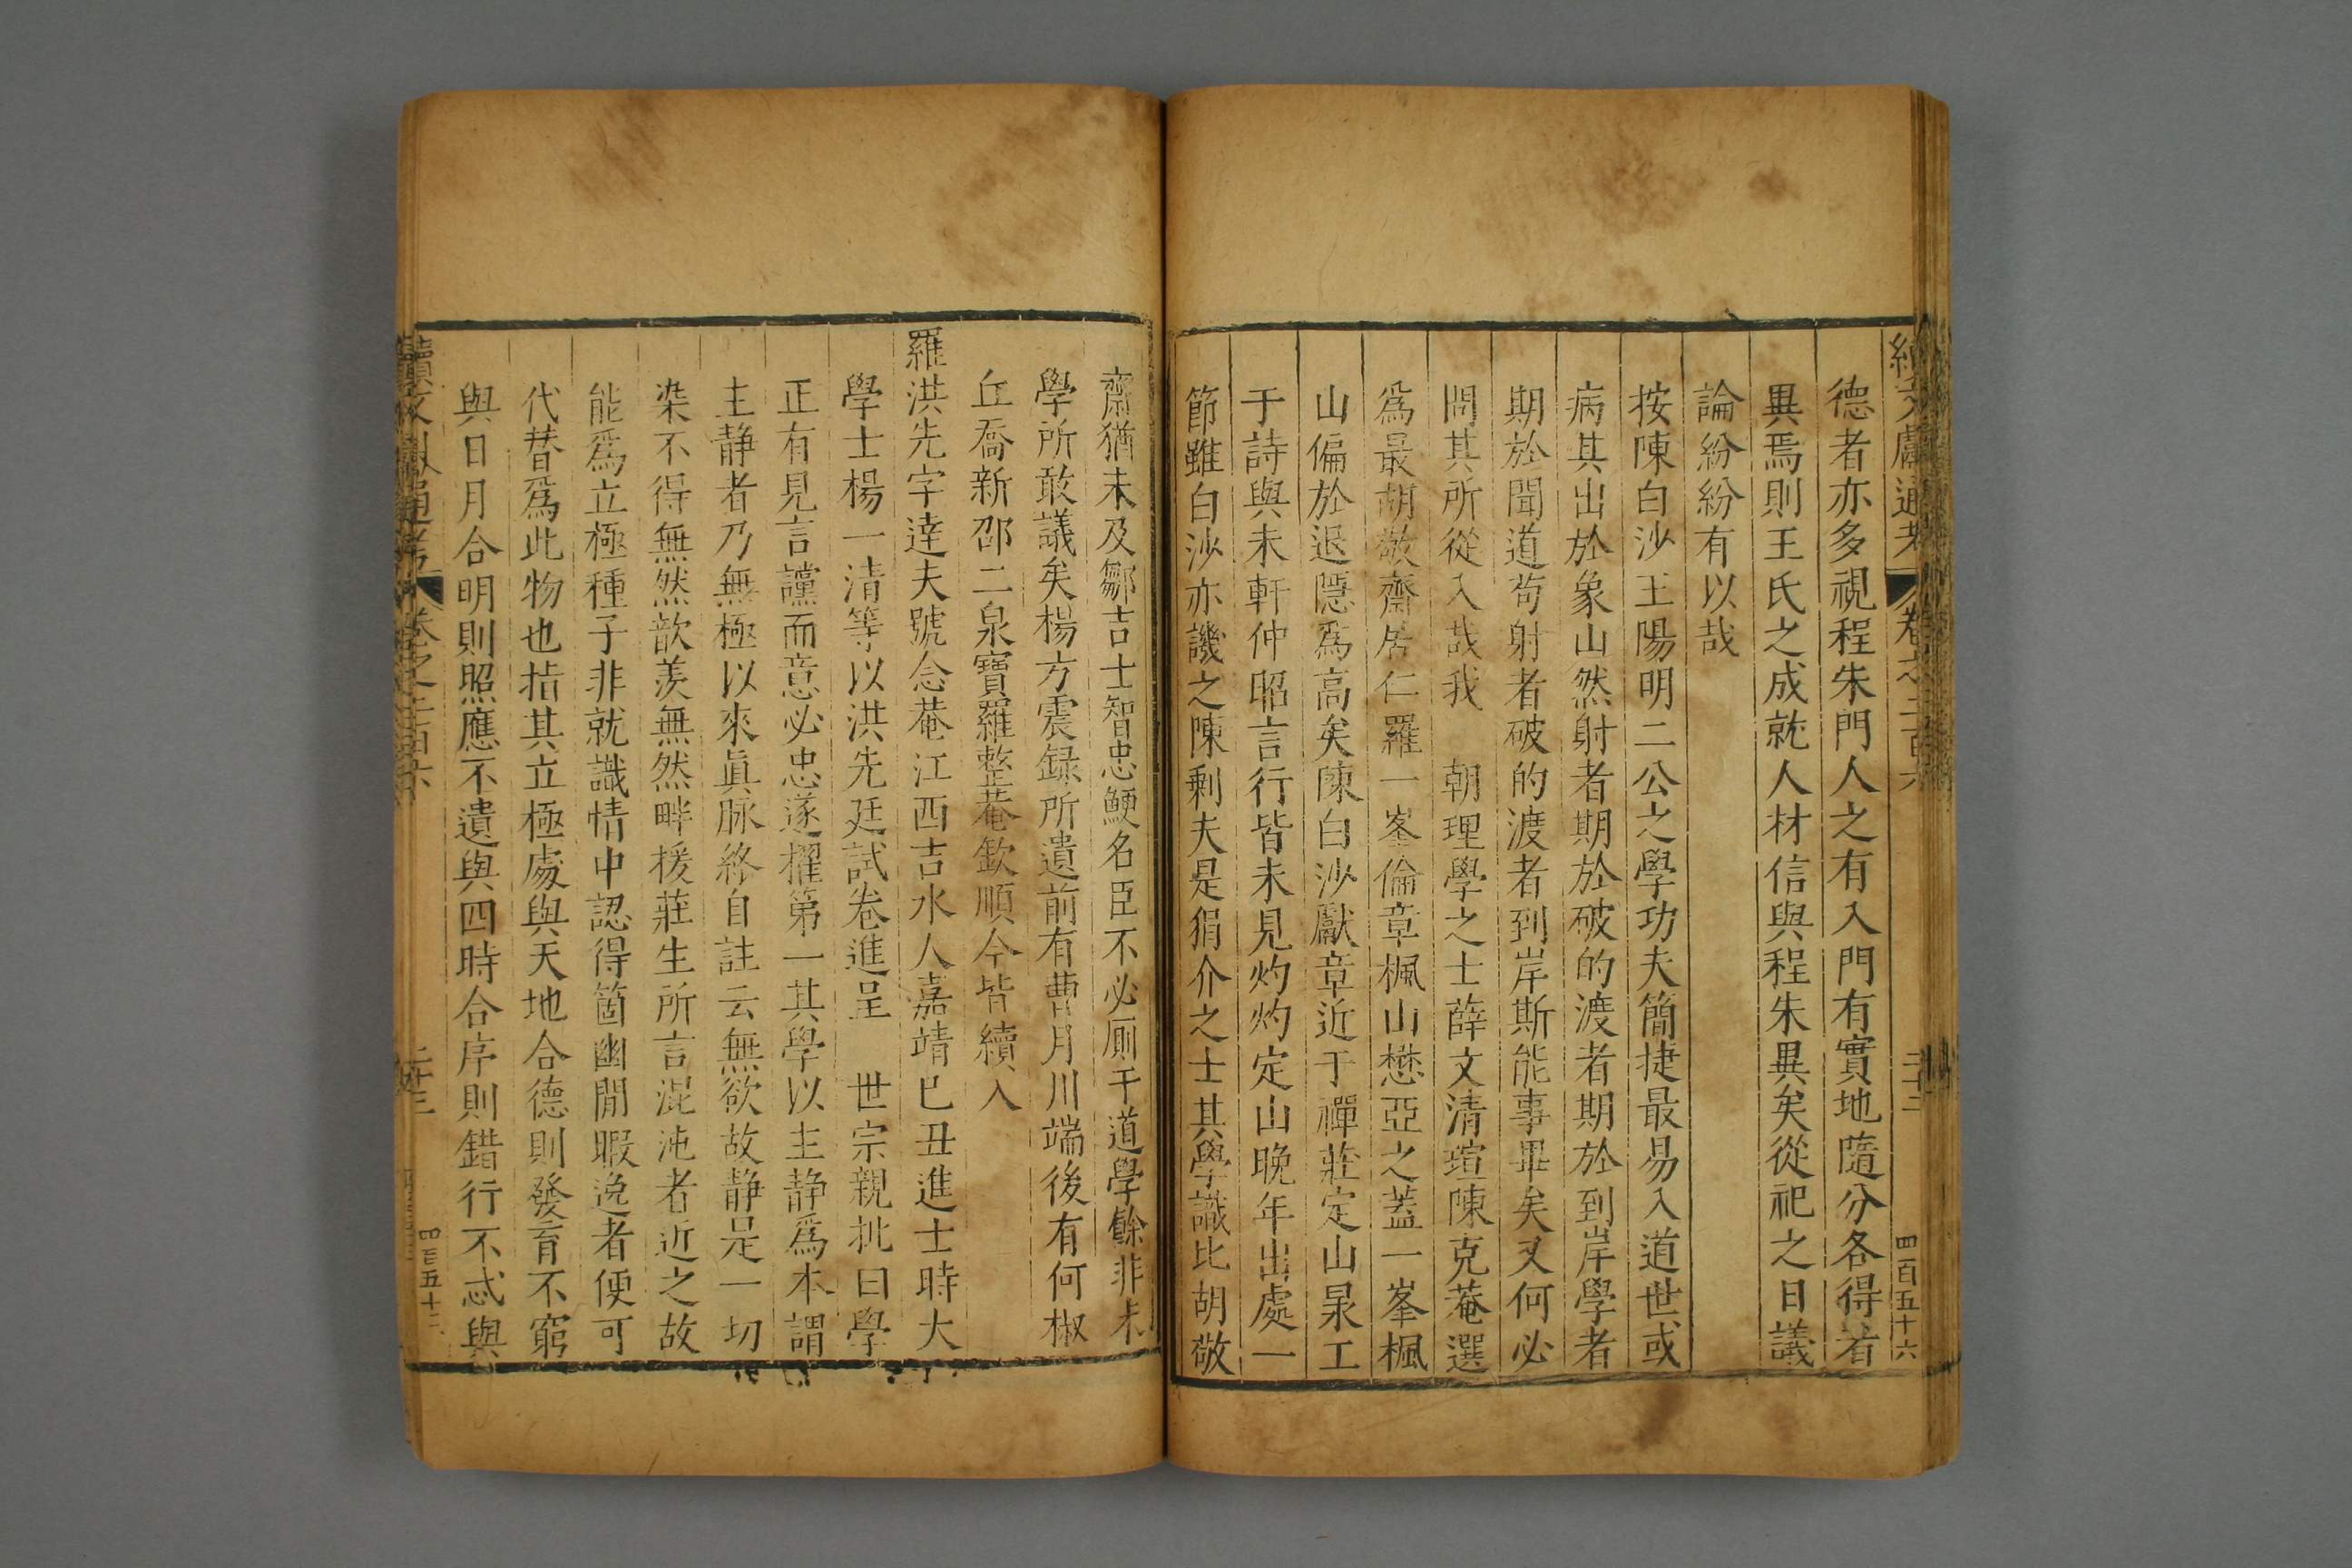 續文獻通考 卷之二百六 二十二 四百五十六
德者亦多視程朱門人之有入門有實地隨分各得者
異焉則王氏之成就人材信與程朱異矣從祀之日議
論紛紛有以哉
按陳白沙王陽明二公之學功夫簡捷最易入道世或
病其出於象山然射者期於破的渡者期於到岸學者
期於聞道茍射者破的渡者到岸斯能事畢矣又何必
問其所從入哉我 朝理學之士薛文清瑄陳克菴選
為最胡敬齋居仁羅一峯倫章楓山懋亞之蓋一峯楓
山偏於退隱爲高矣陳白沙獻章近于禪莊定山杲工
于詩與未軒仲昭言行皆未見灼灼定山晚年出處一
節雖白沙亦譏之陳剩夫是狷介之士其學識比胡敬
齋猶未及鄒吉士智忠鯁名臣不必厠于道學餘非未
學所敢議矣楊方震錄所遺前有曹月川端後有何椒
丘喬新邵二泉寶羅整菴欽順今皆續入
羅洪先字達夫號念菴江西吉水人嘉靖己丑進士時大
學士楊一清等以洪先廷試卷進呈 世宗親批曰學
正有見言讜而意必忠遂擢第一其學以主静爲本謂
主静者乃無極以來眞脉終自註云無欲故静是一切
染不得無然歆羨無然畔援莊生所言混沌者近之故
能爲立極種子非就識情中認得箇幽閒暇逸者便可
代替爲此物也指其立極處與天地合德則發育不窮
與日月合明則照應不遺與四時合序則錯行不忒與
續文獻通考 卷之二百六 二十三